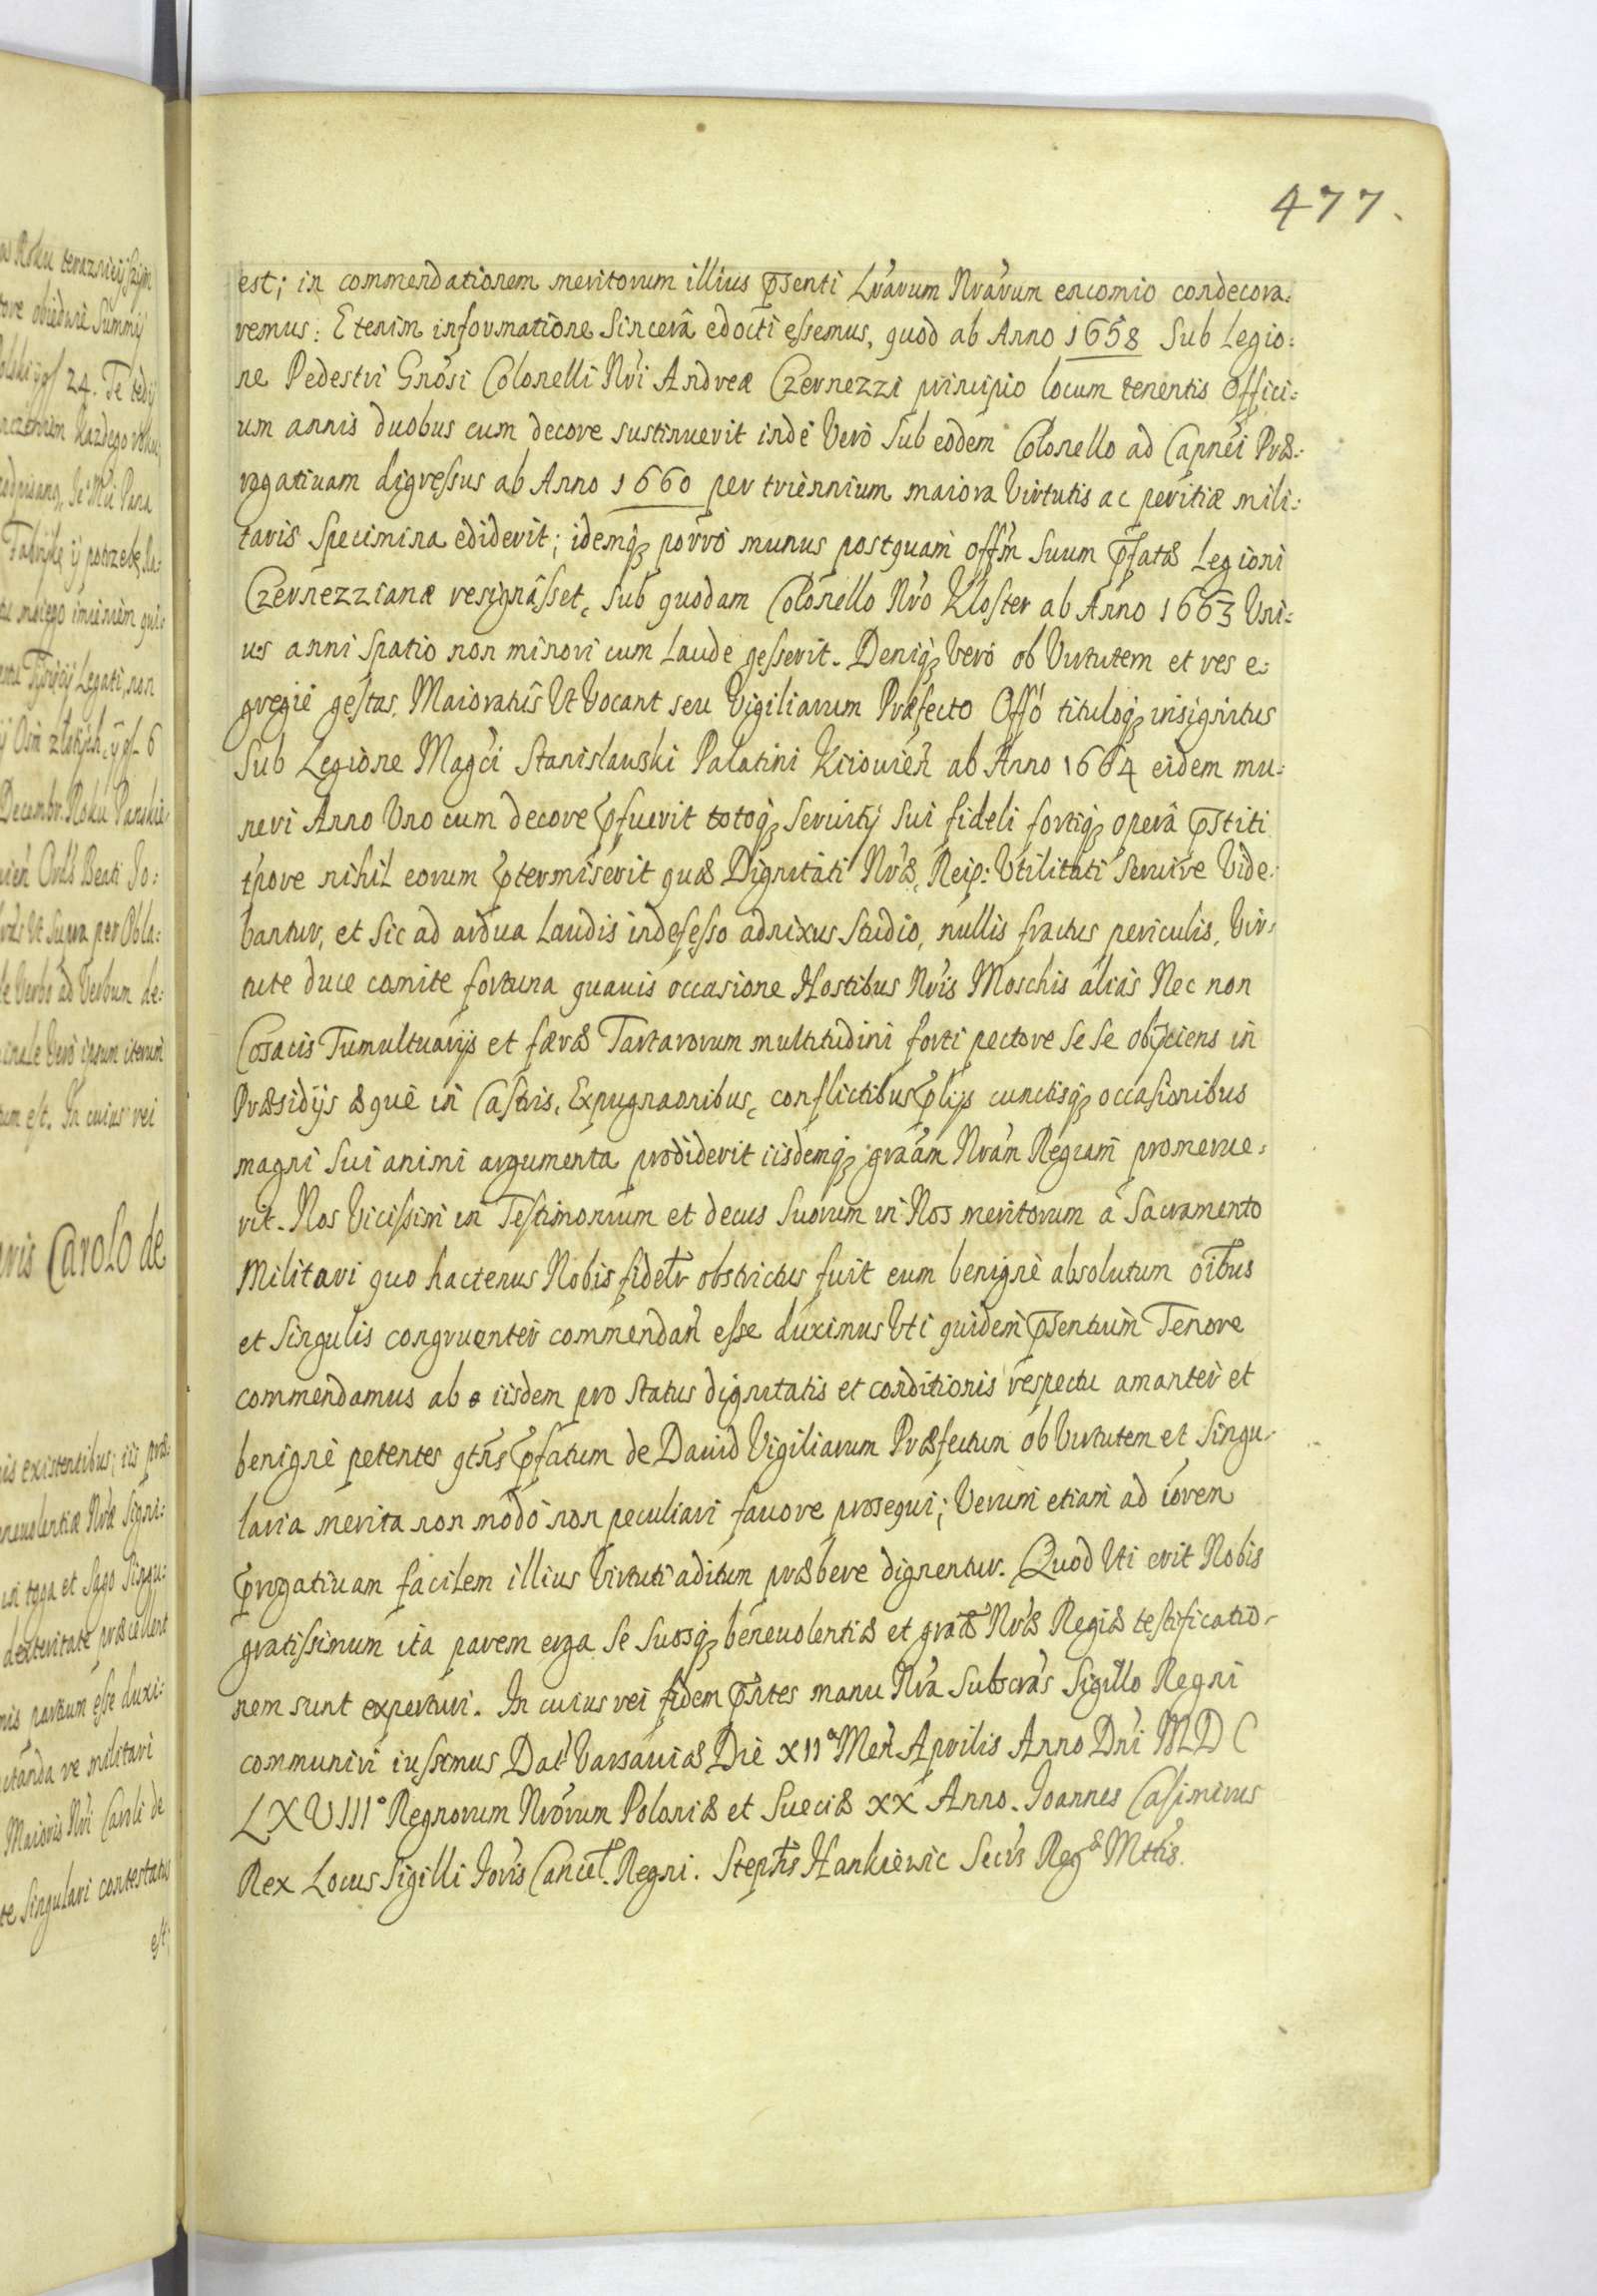 477.
est; in commendationem meritorum illius p̄senti Lrārum Nrārum encomio condecora:
remus: Etenim informatione Sincerâ edocti essemus, quod ab Anno 1658 Sub Legio:
ne Pedestri Gnōsi Colonelli Nrī Andreæ Czernezzi principio locum tenentis Offici:
um annis duobus cum decore sustinuerit indè Verò Sub eodem Colonello ad Capnēi Præ:
rogatiuam digressus ab Anno 1660 per triennium maiora Virtutis ac peritiæ mili:
taris Specimina ediderit; idemq́ꝫ porrò munus postquam offm̄ Suum p̄fatæ Legioni
Czernezzianæ resignâsset, Sub quodam Colonello Nrō Kloster ab Anno 1663 Uni:
us anni Spatio non minori cum Laude gesserit. Deniq́ꝫ Verò ob Virtutem et res e:
gregiè gestas, Maioratûs Ut Vocant seu Vigiliarum Præfecto Offō tituloq́ꝫ insignitus
Sub Legione Magcī Stanislauski Palatini Kiiouień ab Anno 1664 eidem mu:
neri Anno Uno cum decore p̄fuerit totoq́ꝫ Seruitij Sui fideli fortiq́ꝫ operâ p̄stiti
tpore nihil eorum p̄termiserit quæ Dignitati Nræ, Reip: Utilitati Seruire Vide:
bantur, et Sic ad ardua Laudis indefesso adnixus Studio, nullis fractus periculis, Vir:
tute duce comite fortuna quauis occasione Hostibus Nrīs Moschis aliàs Nec non
Cosacis Tumultuarijs et færæ Tartarorum multitudini forti pectore Se Se obijciens in
Præsidijs æquè in Castris, Expugnaonibus, conflictibus p̄lijs cunctisq́ꝫ occasionibus
magni Sui animi argumenta prodiderit iisdemq́ꝫ graām Nrām Regiam promerue:
rit. Nos Vicissim in Testimonium et decus Suorum in Nos meritorum à Sacramento
Militari quo hactenus Nobis fidelr̄ obstrictus fuit eum benignè absolutum oībus
et Singulis congruenter commendań esse duximus Uti quidem p̄sentium Tenore
commendamus ab iisdem pro Status dignitatis et conditionis respectu amanter et
benignè petentes qtn̄s p̄fatum de Dauid Vigiliarum Præfectum ob Virtutem et Singu:
laria merita non modò non peculiari fauore prosequi; Verùm etiam ad iōrem
p̄rogatiuam facilem illius Virtuti aditum præbere dignentur. Quod Uti erit Nobis
gratissimum ita parem erga Se Suosq́ꝫ beneuolentiæ et graæ Nræ Regiæ testificatio:
nem sunt experturi. In cuius rei fidem p̄ntes manu Nrā Subscrās Sigillo Regni
communiri iussimus Dat Varsauiæ Die XIIª Meń Aprilis Anno Dnī MDC
LXVIII° Regnorum Nrōrum Poloniæ et Sueciæ XX Anno. Joannes Casimirus
Rex Locus Sigilli Jorīs Cancel. Regni. Stephs Hankiewic Secrīs Regæ Mttis.